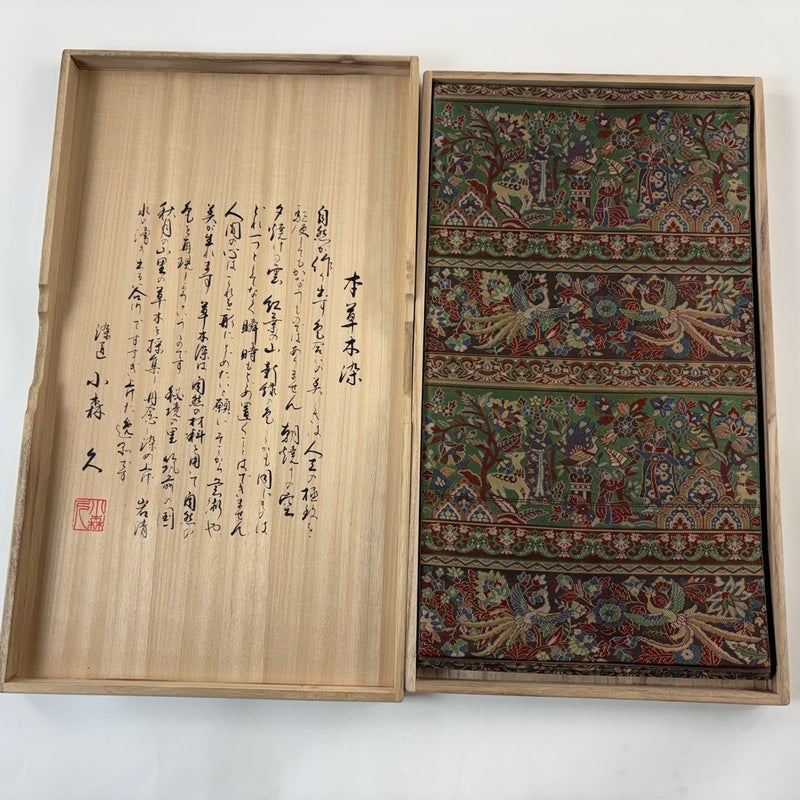 本草木染
自然が作り出す色合いの美しさは人工の極致を
駆使してもかなうものではありません 朝焼けの空
夕焼けの雲 紅葉の山 新緑の色どれも同じものは
どれ一つとしてなく瞬時もとめ置くことはできません
人間の心はこれを形にとめたい願い そこから芸術や
美が生れます 草木染は自然の材料を用て自然の
色を再現しようというものです 秘境の里 筑前の国
秋月の山里の草木を採集し丹念に染め上げ 岩清
水の湧き出る谷川ですすぎ上げた逸品です
染道 小森 久